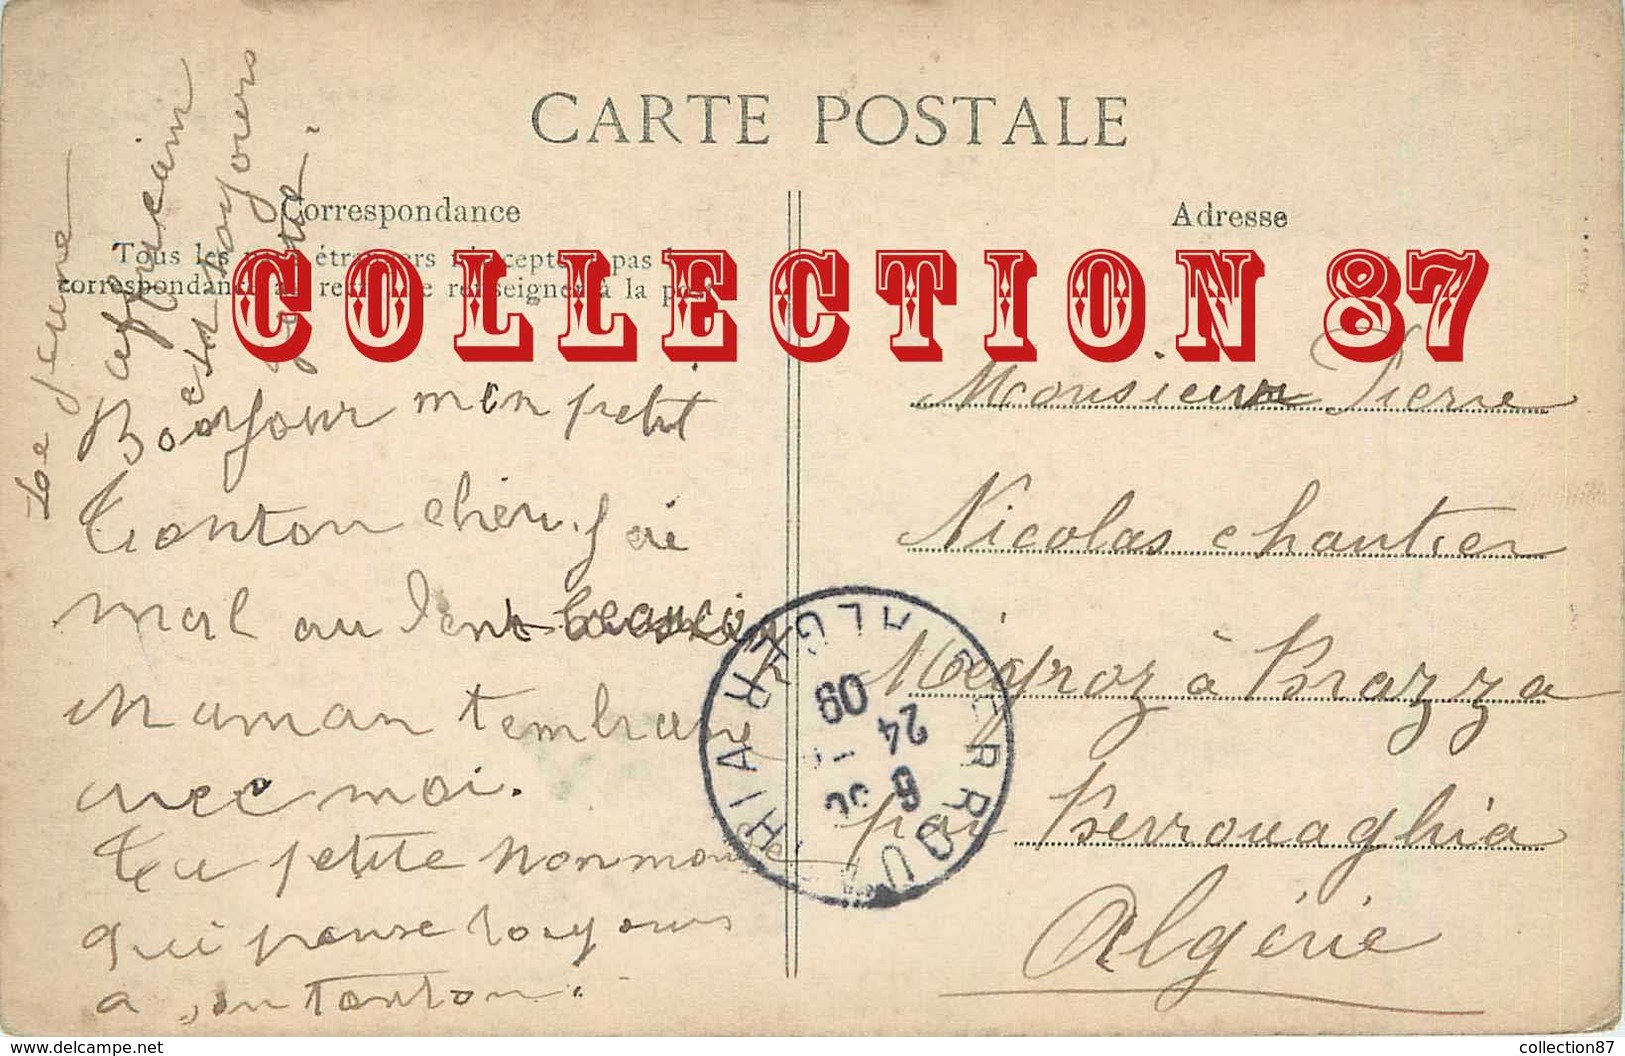 CARTE POSTALE
Correspondance
Adresse
Tous les pays étrangers n'acceptent pas la
correspondance au recto. Se renseigner à la poste
COLLECTION 87
Le jeune
africain
est toujours
Bonjour mon petit
tonton chéri. J'ai
mal au dent
Maman
avec moi.
Ta petite
qui panse toujours
a son tonton.
Monsieur Pierre
Nicolas chantier
Meyroz à Brazza
par Berrouaghia
Algérie
BERROUAGHIA
ALGER
6
24
09
www.delcampe.net
collection87